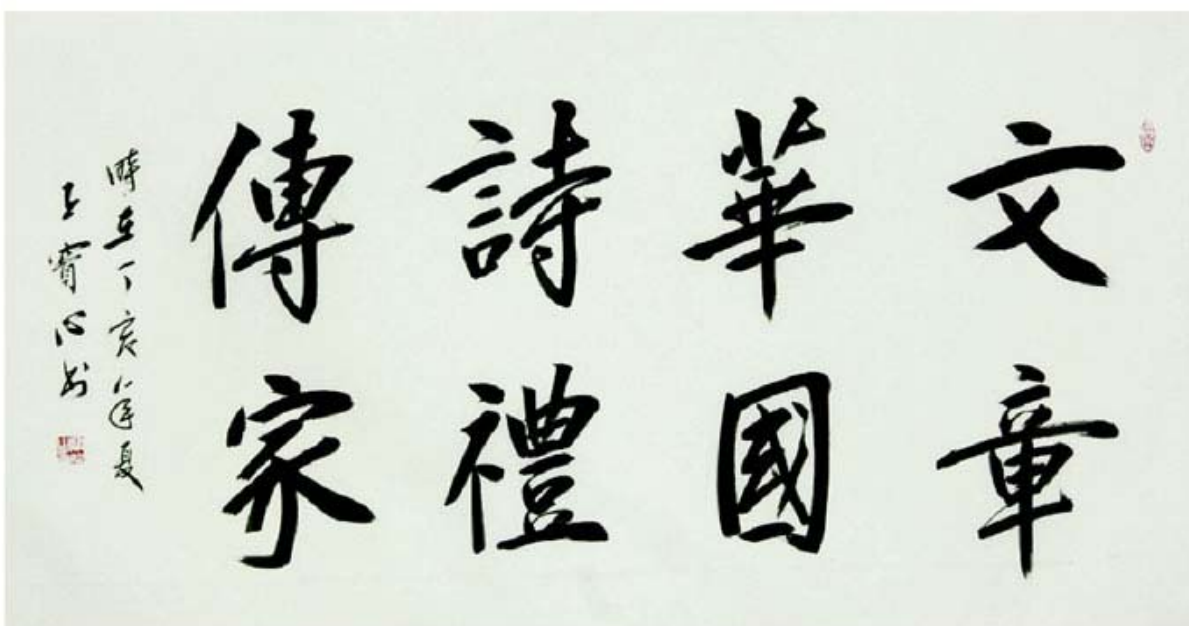 文章
華國
詩禮
傳家
時在丁亥年夏
王寶心書